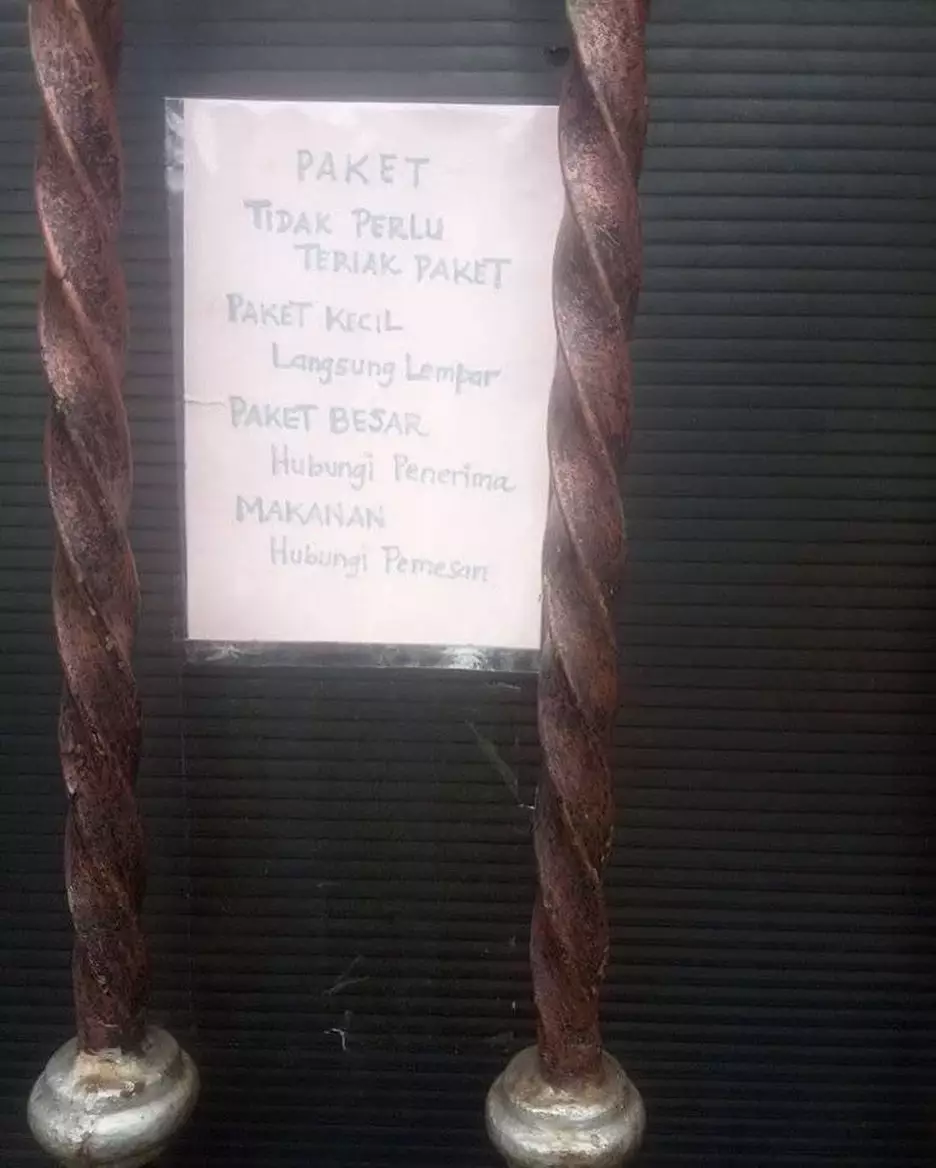 PAKET
TIDAK PERLU
TERIAK PAKET
PAKET KECIL
Langsung Lempar
PAKET BESAR
Hubungi Penerima
MAKANAN
Hubungi Pemesan